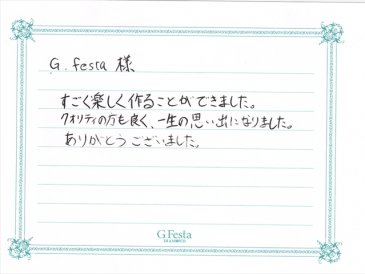 G.festa 様
すごく楽しく作ることができました。
クオリティの方も良く、一生の思い出になりました。
ありがとうございました。
G.Festa
DIAMOND